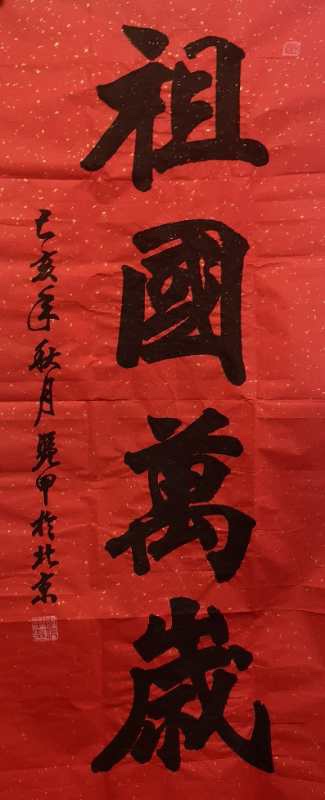 祖國萬歲
己亥年秋月㠭甲於北京